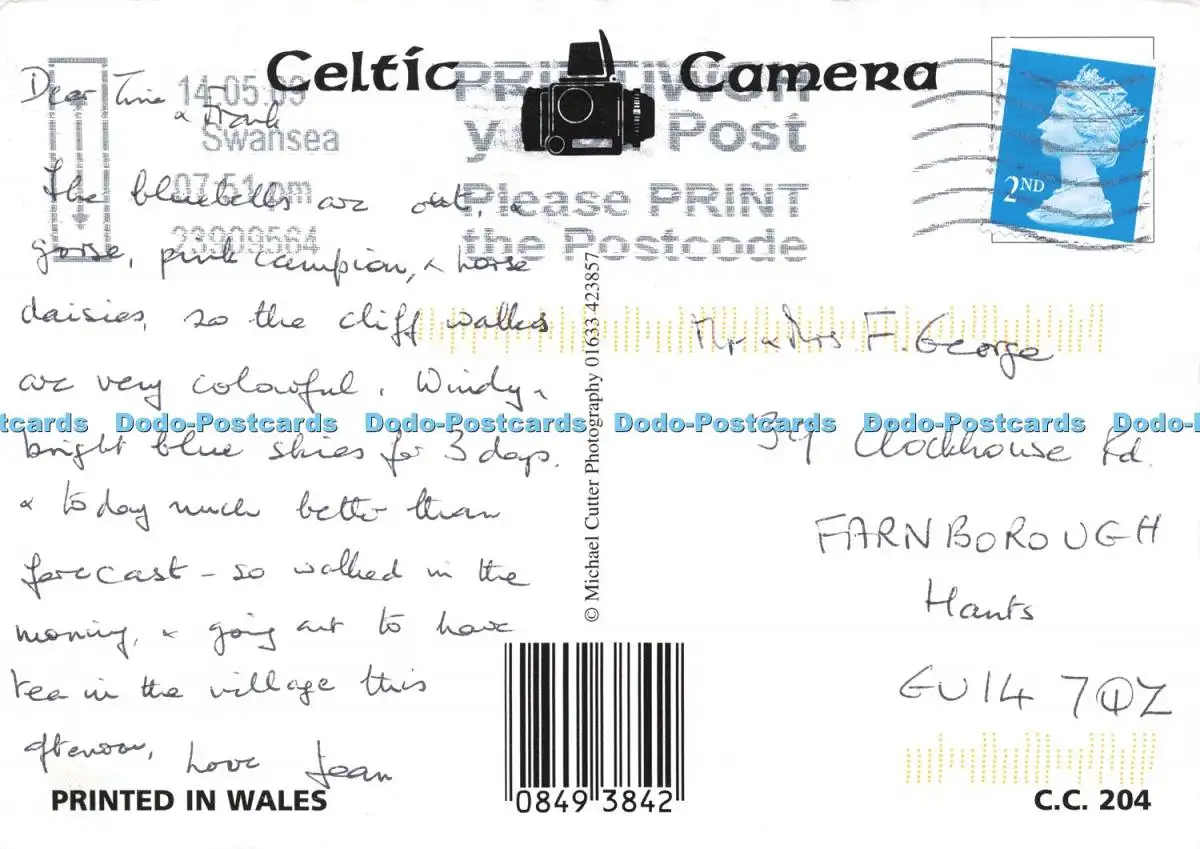 Celtic Camera
14-05.09
Swansea
07:51 pm
23909564
y Post
Please PRINT
the Postcode
2ND
Dear
& Frank
The bluebells are out, &
gorse, pink campion, & horse
daisies, so the cliff walks
are very colourful. Windy &
bright blue skies for 3 days.
& today much better than
forecast - so walked in the
morning, & going out to have
tea in the village this
afternoon, Love Jean
Mr & Mrs F. George
39 Clockhouse Rd.
FARNBOROUGH
Hants
GU14 7QZ
© Michael Cutter Photography 01633 423857
PRINTED IN WALES
0849 3842
C.C. 204
tcards Dodo-Postcards Dodo-Postcards Dodo-Postcards Dodo-Postcards Dodo-